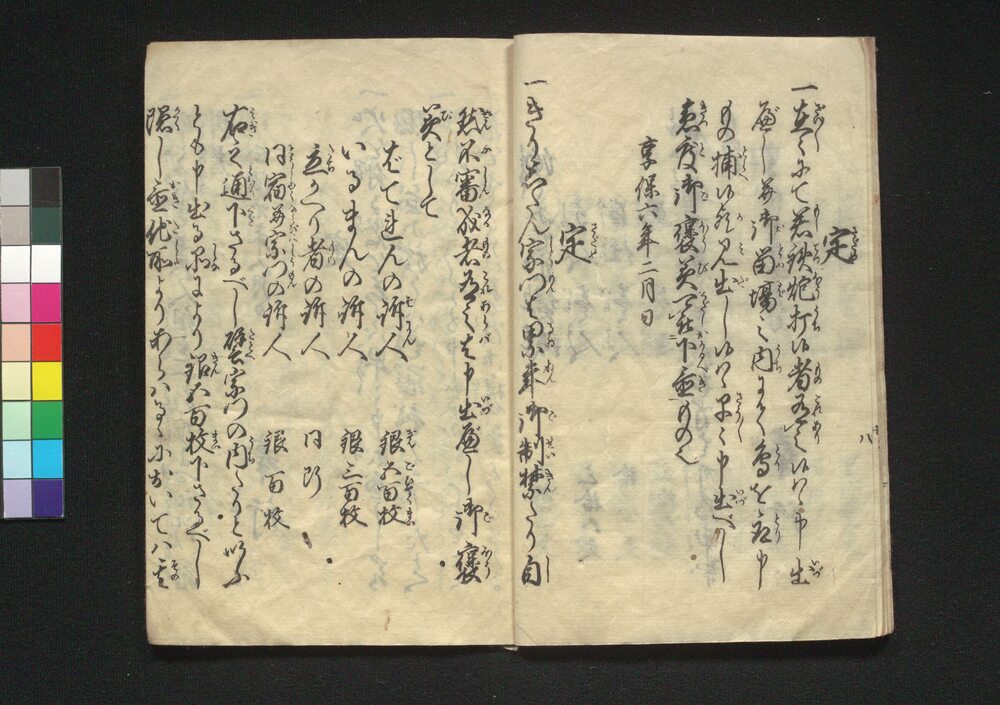 定
一在々にて若鉄炮打候者有之候ハヽ申出
べし并御留場之内にて鳥を取申
もの捕候歟見出し候ハヽ早々申出べし
急度御褒美可被下置もの也
享保六年二月日
定
一きりしたん宗門ハ累年御制禁たり自
然不審成者有之ハ申出べし御褒
美として
ばてれんの訴人 銀五百枚
いるまんの訴人 銀三百枚
立かへり者の訴人 同断
同宿并宗門の訴人 銀百枚
右之通下さるべし譬宗門の内たりといふ
とも申出る品により銀五百枚下さるべし
隠し置他所よりあらハるゝにおいてハ其
八